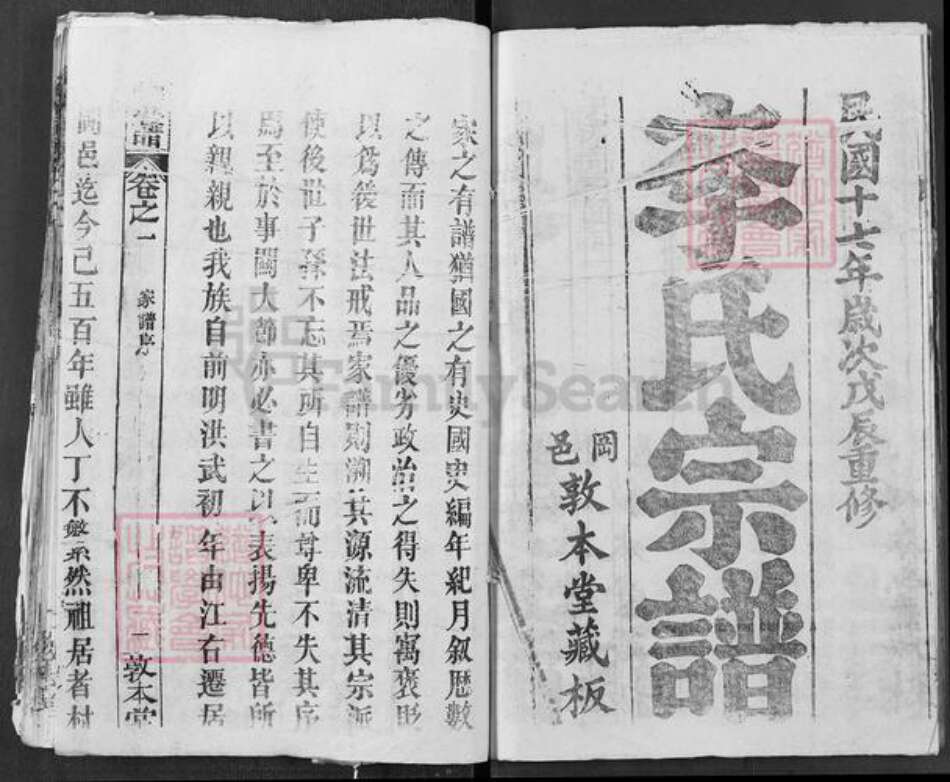 民國十七年歲次戊辰重修
李氏宗譜
岡邑
敦本堂藏板
家之有譜猶國之有史國史編年紀月叙歷數
之傳而其人品之優劣政治之得失則寓褒貶
以爲後世法戒焉家譜則溯其源流清其宗派
使後世子孫不忘其所自生而尊卑不失其序
焉至於事關大節亦必書之以表揚先德皆所
以親親也我族自前明洪武初年由江右遷居
卷之一 家譜序 一 敦本堂
岡邑迄今已五百年雖人丁不繁然祖居者村
FamilySearch